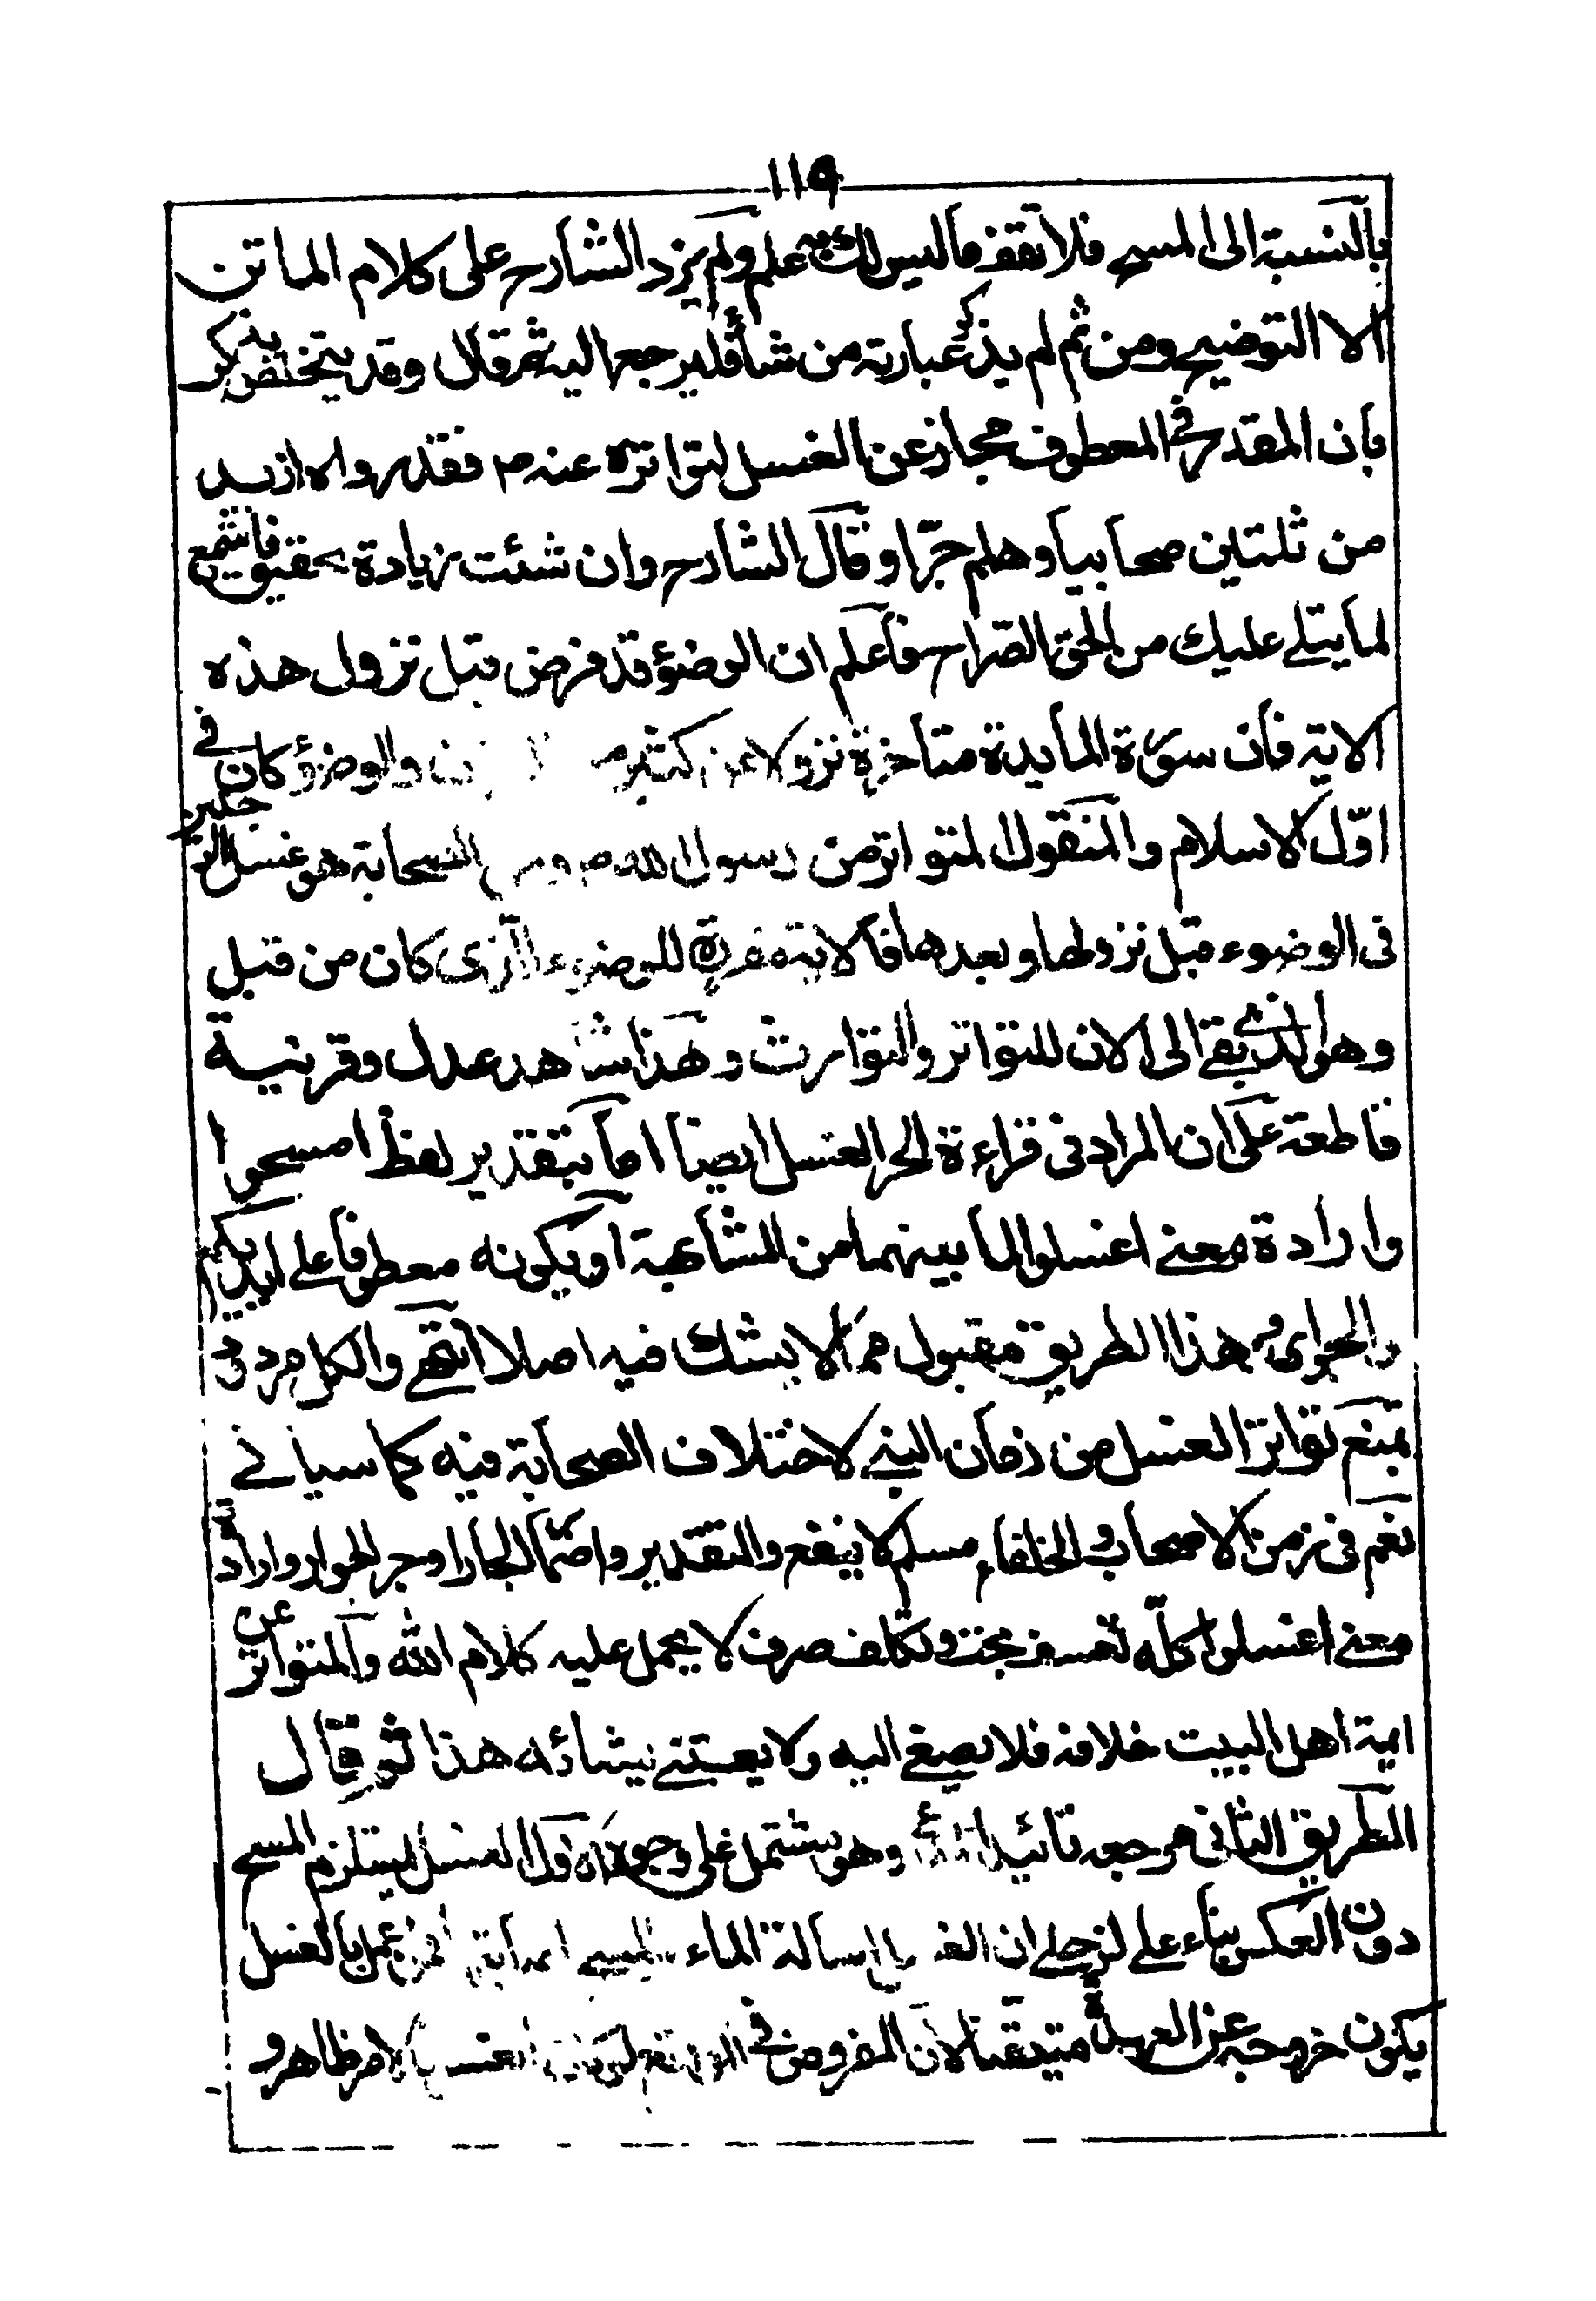 ١١٩
بالنسبة الى المسح فلا تقف ما ليس لك به علم ولم يزد الشارح على كلام الماتن
الا التوضيح ومن ثم لم يذكر عبارته من شاء فليرجع اليه ثم قال وقد يتخلص يذكر
بان المقدر في المعطوف مجاز عن الغسل لتواتره عنه م فقد رواه ازيد
من ثلثين صحابيا وهلم جرّا وقال الشارح وان شئت زيادة تحقيق فاستمع
لما يتلى عليك من الحق الصّراح فاعلم ان الوضوء قد فرض قبل نزول هذه
الاية فان سورة المايدة متأخرة نزولا عن كثير من والوضوء كان في
اوّل الاسلام والمنقول المتواتر من رسول الله ص و الصحابة هو غسل الرجلين
فى الوضوء قبل نزولها وبعدها فالاية مقررة للوضوء الذى كان من قبل
وهو الذي بقى الى الان للتواتر والتوارث وهذا شاهد عدل وقرينة
قاطعة على ان المراد فى قراءة الجر الغسل ايضا اما بتقدير لفظ امسحوا
وارادة معنى اغسلوا لما بينهما من المشابهة او بكونه معطوفا على ايديكم
والجر هذا الطريق مقبول مما لا يشك فيه اصلا انتهى والكل مردود
بمنع تواتر الغسل من زمان النبي لاختلاف الصحابة فيه كما سياتي
نعم فى زمن الاصحاب والخلفاء مسلم لا ينفع والتقدير واضمار الجار او جر الجوار وارادة
معنى اغسلوا كلّه تعسف بحت وتكلف صرف لا يحمل عليه كلام الله والمتواتر عن
ايمة اهل البيت خلافه فلا يصغى اليه ولا يعتنى بشانه هذا ثم قال
الطريق الثانى مرجعه تائيد وهو يشتمل على وجوه الاول الغسل يستلزم المسح
دون العكس بناء على ان اسالة الماء عمل بالغسل
يكون خروجه عن العهدة متيقنا لان المفروض في ظاهر و